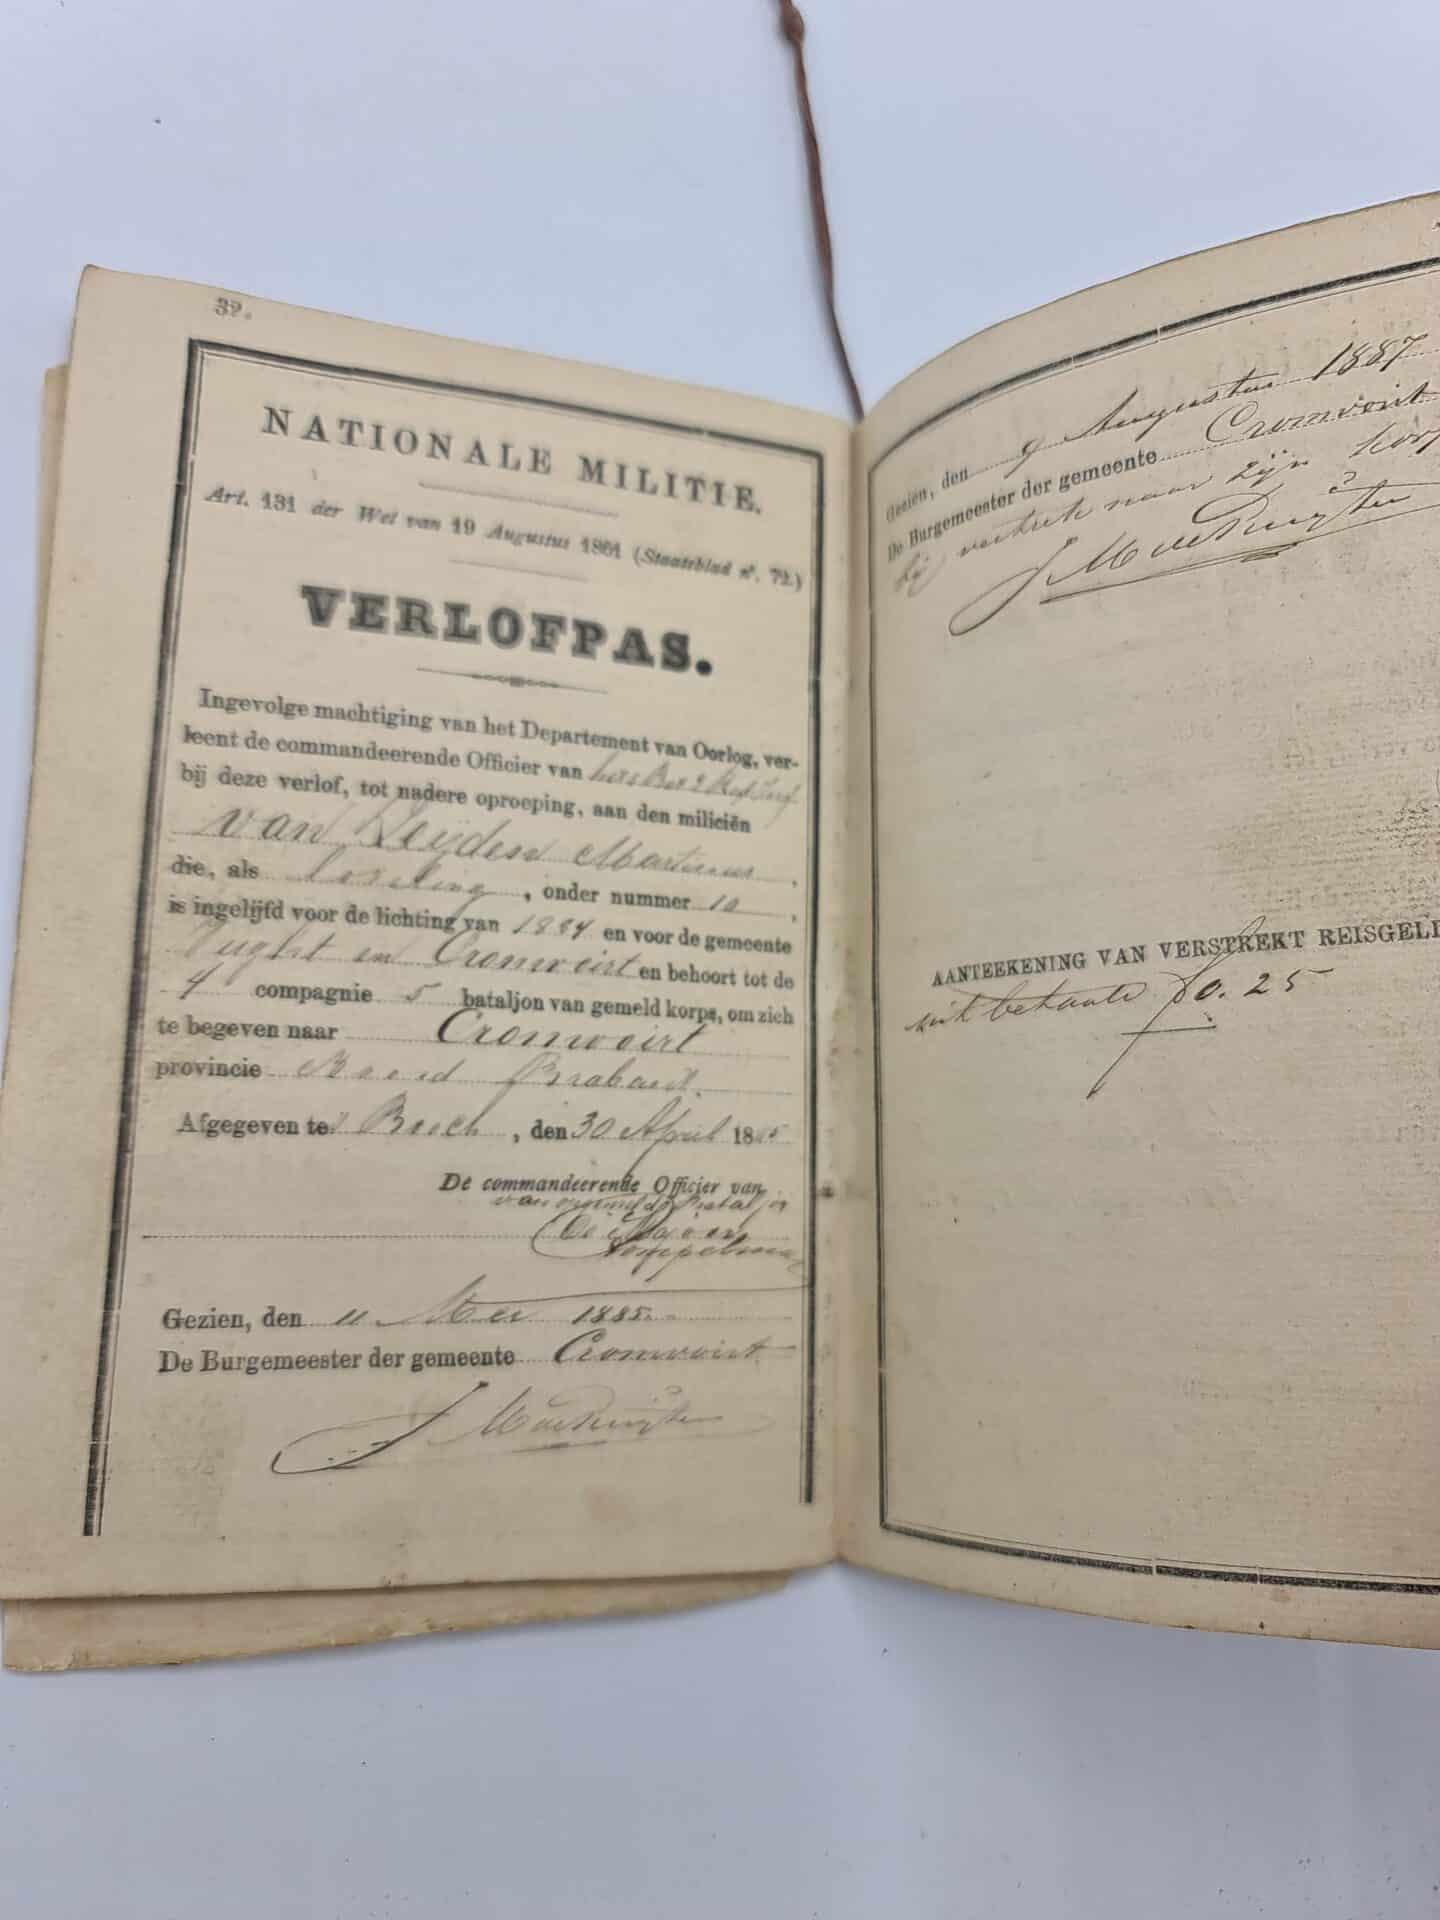 32.
NATIONALE MILITIE.
Art. 131 der Wet van 19 Augustus 1861 (Staatsblad n°. 72.)
VERLOFPAS.
Ingevolge machtiging van het Departement van Oorlog, ver-
leent de commandeerende Officier van
bij deze verlof, tot nadere oproeping, aan den miliciën
van Leijden Martinus,
die, als loteling, onder nummer 10,
is ingelijfd voor de lichting van 1884 en voor de gemeente
Vught en Cromvoirt en behoort tot de
4 compagnie 5 bataljon van gemeld korps, om zich
te begeven naar Cromvoirt
provincie Noord Brabant.
Afgegeven te 's Bosch, den 30 April 1885
De commandeerende Officier van
van opgemeld Bataljon
De Majoor
Gezien, den 11 Mei 1885.
De Burgemeester der gemeente Cromvoirt
Gezien, den 9 Augustus 1887
De Burgemeester der gemeente Cromvoirt
bij vertrek naar zijn
AANTEEKENING VAN VERSTREKT REISGELD
uit betaald f 0.25